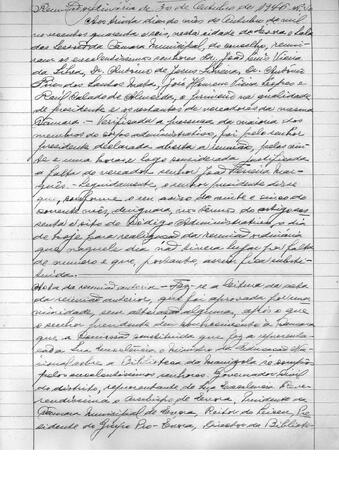 Reunião ordinária de 30 de Outubro de 1946
Aos trinta dias do mês de Outubro de mil
novecentos quarenta e seis, nesta cidade de Evora e Sala
das Sessões da Câmara Municipal, do concelho, reuni-
ram os excelentíssimos senhores dr. João Luís Vieira
da Silva, Dr. António de Jesus, Dr. António
Pires dos Santos, José Homem Vieira
Raul Calado de Almeida, e Jurnião na qualidade
de presidente e os restantes de vereadores da mesma
Câmara. - Verificada a presença da maioria dos
membros do corpo administrativo, foi pelo senhor
presidente declarada aberta a reunião, pelas
e uma horas e logo considerada justificada
a falta do vereador senhor José Mar-
quês. - Seguidamente, o senhor presidente disse
que, conforme o seu aviso de vinte e cinco do
corrente mês, designara, nos termos do artigo ses-
senta e oito do Código Administrativo, o dia
de hoje para a realização da reunião ordinária
que naquele dia não tivera lugar por falta
de número e que, portanto, assim fica substi-
tuida.
Acta da reunião anterior - Fez-se a leitura da acta
da reunião anterior, que foi aprovada por una-
nimidade, sem alteração alguma, após o que
o senhor presidente deu conhecimento à Câmara
que a comissão constituida que foi a representa-
Sua Excelência o Ministro da Educação Na-
cional sobre a Biblioteca e Manizola se compõe
pelos excelentíssimos senhores: Governador Civil
do distrito, representante de Sua Excelência Reve-
rendíssima o Arcebispo de Evora, Presidente da
Câmara Municipal de Evora, Reitor do Liceu, Pre-
sidente do Grupo Pro-Evora, Director da Bibliote-